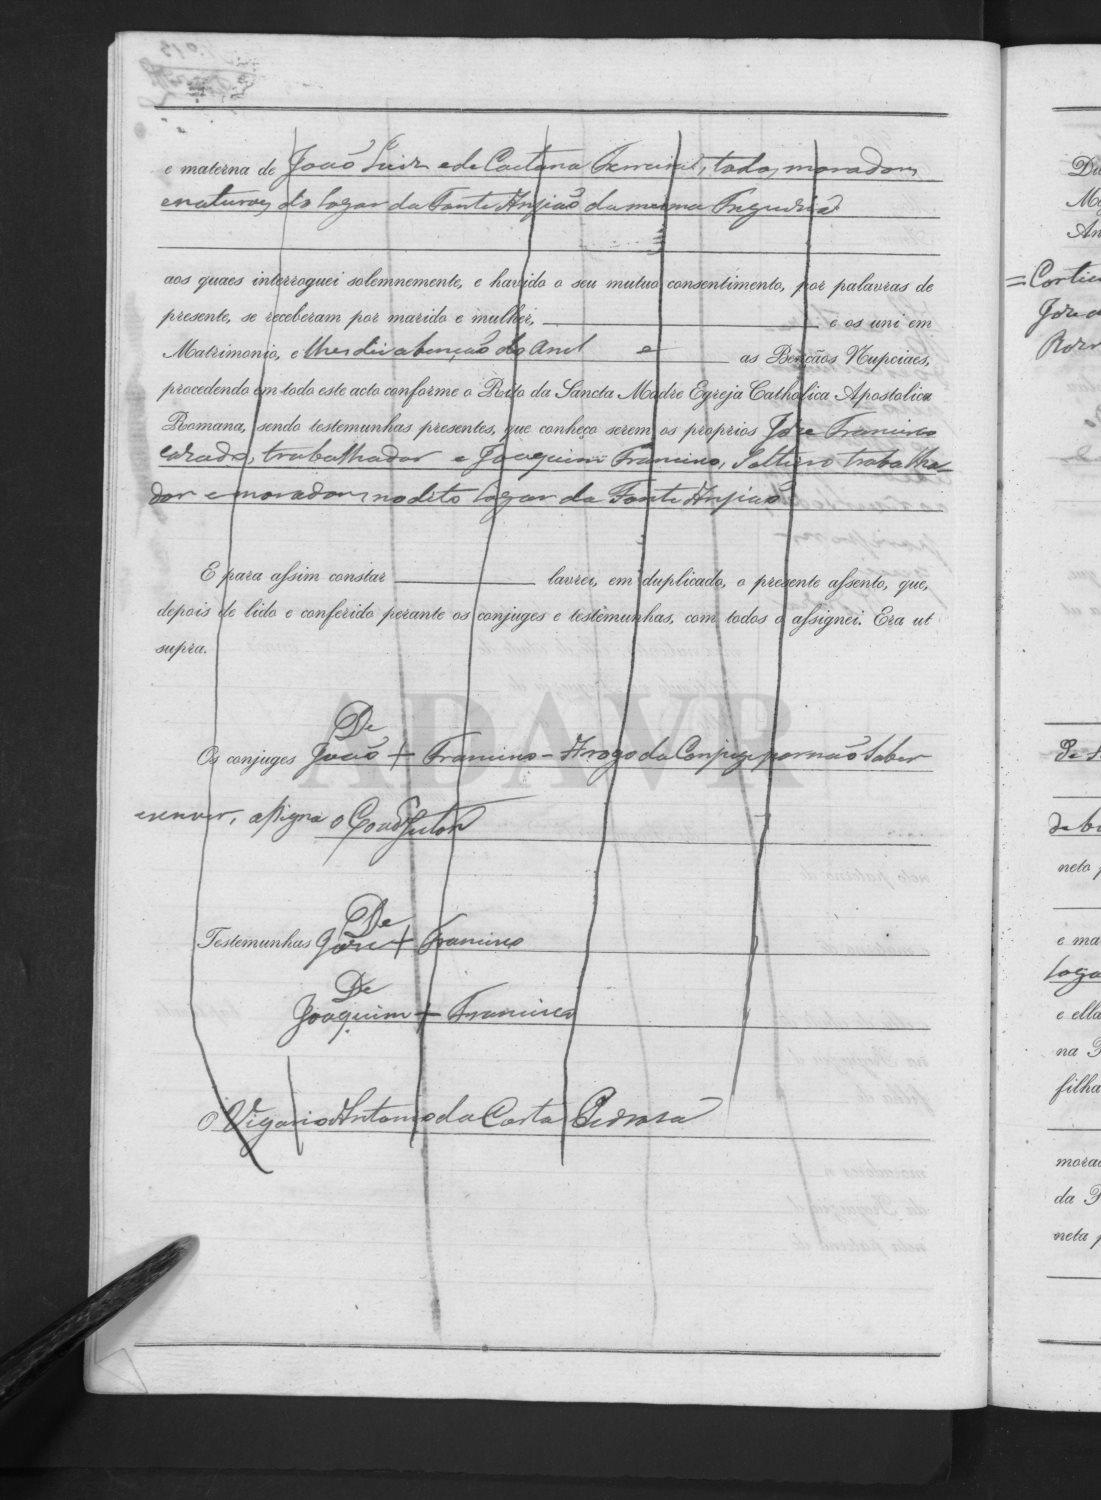 e materna de João Luiz e de Caetana Ferreira, todos moradores
e naturaes do logar da Fonte Anjiaõ da mesma Freguezia
aos quaes interroguei solemnemente, e havido o seu mutuo consentimento, por palavras de
presente, se receberam por marido e mulher, e os uni em
Matrimonio, e lhes dei a benção do Anel e as Bençãos Nupciaes,
procedendo em todo este acto conforme o Rito da Sancta Madre Egreja Catholica Apostolica
Romana, sendo testemunhas presentes, que conheço serem os proprios Jose Francisco
casado, trabalhador e Joaquim Francisco, Solteiro trabalha-
dor e moradores no dito logar da Fonte Anjiaõ
E para assim constar lavrei, em duplicado, o presente assento, que,
depois de lido e conferido perante os conjuges e testemunhas, com todos o assignei. Era ut
supra.
ADAVR
De
Os conjuges João + Francisco - A rogo da Conjuge por não saber
escrever, assigna o Coadjutor
De
Testemunhas Jose + Francisco
De
Joaquim + Francisco
O Vigario Antonio da Costa Pedrosa
Cortic
Jose
neto p
e ma
loga
e ella
na F
filha
morad
da F
neta p